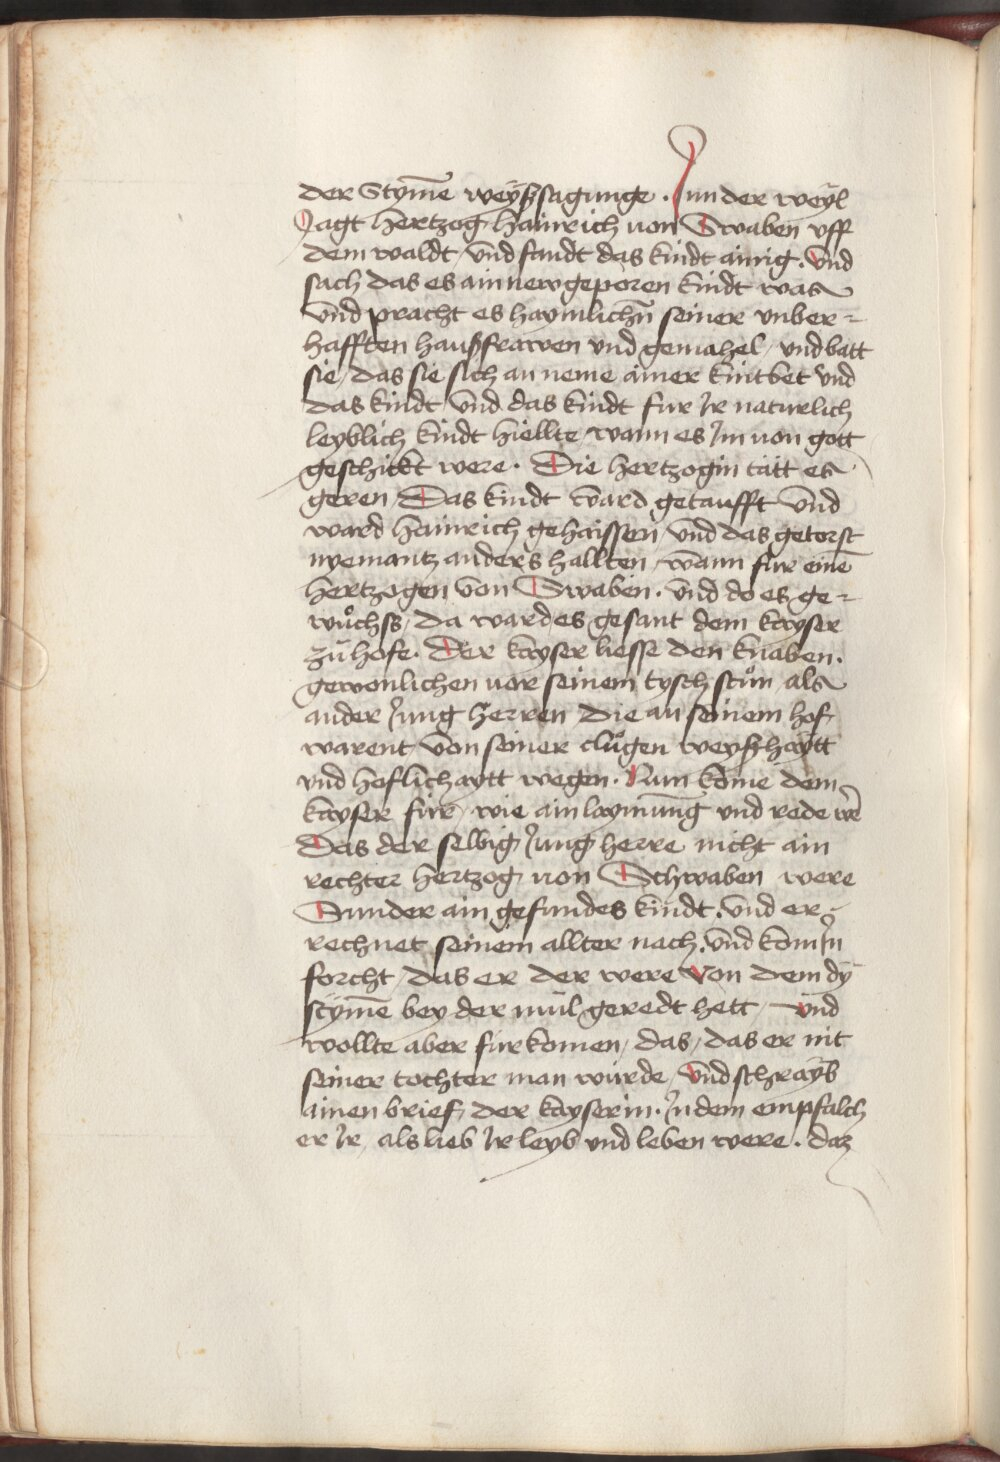 der Stym̄e weyſsſagunge · Inn der weyl
Jagt hertzog hainrich von Swaben vff
dem waldt / vnd fandt das kindt ainig · Vnd
ſach das es ain new geporen kindt was
vnd pracht es haymlichn̄ ſeiner vnber-
hafften hauſsfrawen vnd gemahel / vnd batt
ſie / das ſie ſich an neme ainer kintbet vnd
das kindt vnd das kindt fur Ir naturlich
leyblich kindt hiellte wann es Im von gott
geſchickt were · Die hertzogin tätt es
geren / Das kindt ward getaufft vnd
ward hainrich gehaiſſen / vnd das getorſt
nyemantz anders hallten / wann für eine̅
hertzogen von Swaben · vnd do es ge-
wůchſs / da ward es geſant dem kayſer
zu hofe · Der kayſer lieſſe den knaben ·
gewonlichen vor ſeinem tyſch ſtůn / als
ander Jung herren die an ſeinem hof
warent von ſeiner clůgen weyſshaytt
vnd hoflichaytt wegen · Nun kome dem
kayſer für / wie ain laymung vnd rede we̅
Das der ſelbig Jung herre nicht ain
rechter hertzog von Schwaben were
Sunder ain gefundes kindt · vnd er-
rechnet ſeinem allter nach · vnd kom In
forcht / das er der were von dem dy
ſtym̄e bey der mül geredt hett / vnd
wollte aber fürkomen / das / das er nit
ſeiner tochter man würde / Vnd ſchrayb
ainen brief der kayſerin · In dem empfalch
er Ir / als lieb Ir leyb vnd leben were · daz